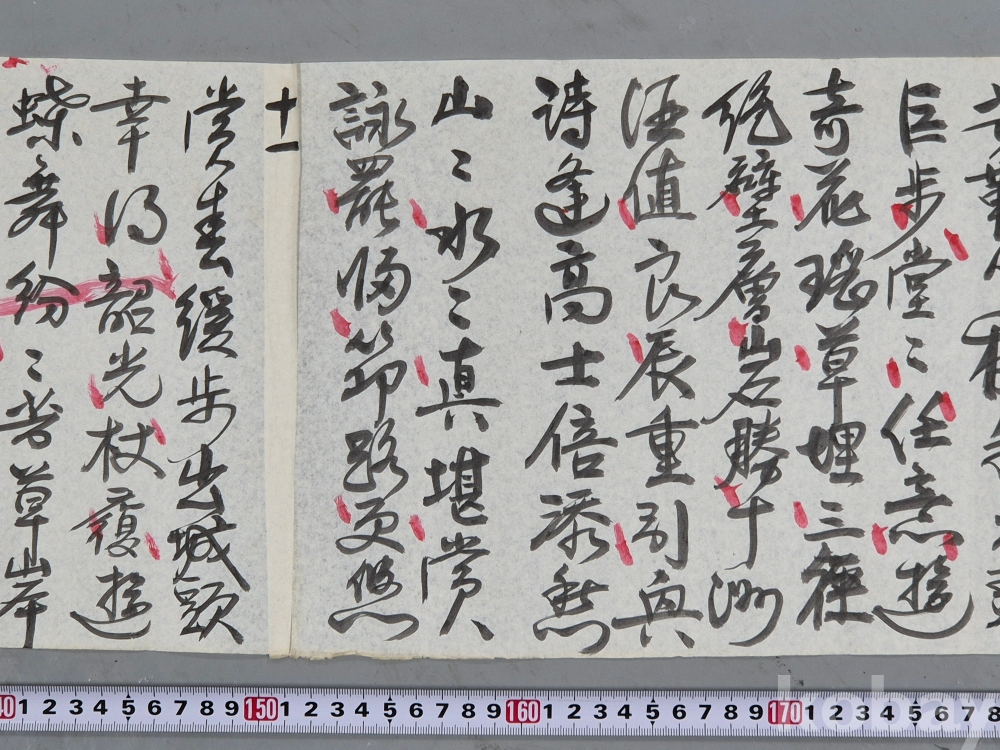 巨步堂〻任意遊
奇花瑤草埋三徑
絕壁層岩勝十洲
酒值良辰重引興
詩逢高士倍添愁
山〻水〻真堪賞
詠罷歸筇路更悠
十一
賞春緩步出城頭
幸得韶光杖履遊
蝶舞紛〻芳草岸
40 1 2 3 4 5 6 7 8 9 150 1 2 3 4 5 6 7 8 9 160 1 2 3 4 5 6 7 8 9 170 1 2 3 4 5 6 7 8
kobay